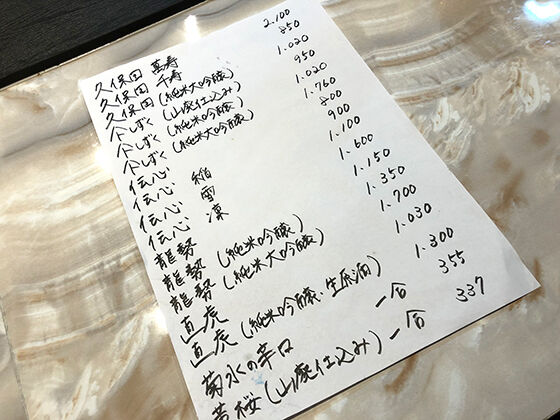 久保田 萬寿 2.100
久保田 千寿 850
久保田 (純米大吟醸) 1.020
しずく (山廃仕込み) 950
しずく (純米吟醸) 1.020
しずく (純米大吟醸) 1.760
伝心 稲 800
伝心 雪 900
伝心 凛 1.100
伝心 1.600
龍勢 1.150
龍勢 (純米吟醸) 1.350
龍勢 (純米大吟醸) 1.700
直虎 1.030
直虎 (純米吟醸、生原酒) 1.300
菊水の辛口 一合 355
(山廃仕込み) 一合 337